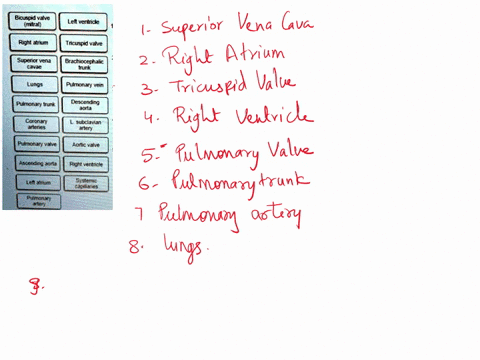 Bicuspid valve (mitral)
Left ventricle
Right atrium
Tricuspid valve
Superior vena cavae
Brachiocephalic trunk
Lungs
Pulmonary vein
Pulmonary trunk
Descending aorta
Coronary arteries
L. subclavian artery
Pulmonary valve
Aortic valve
Ascending aorta
Right ventricle
Left atrium
Systemic capillaries
Pulmonary artery
1- Superior Vena Cava
2- Right Atrium
3- Tricuspid Valve
4. Right Ventricle
5- Pulmonary Valve
6- Pulmonary trunk
7 Pulmonary artery
8. lungs.